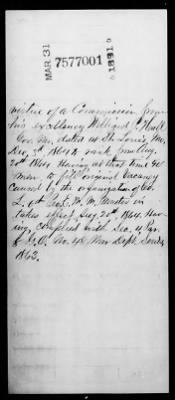 MAR 31
7577001
1891
virtue of a Commission from
his excellency Willard P. Hall
Gov. Mo. dated at St. Louis Mo.
Dec. 3d 1864 rank from Aug.
20th 1864. Having at that time
men to fill original Vacancy
caused by the organization of Co.
L. 6th Regt. Muster in
takes effect Aug 20th, 1864. Hav-
ing complied with Sec. 4 Par.
Dept. Series
1863.